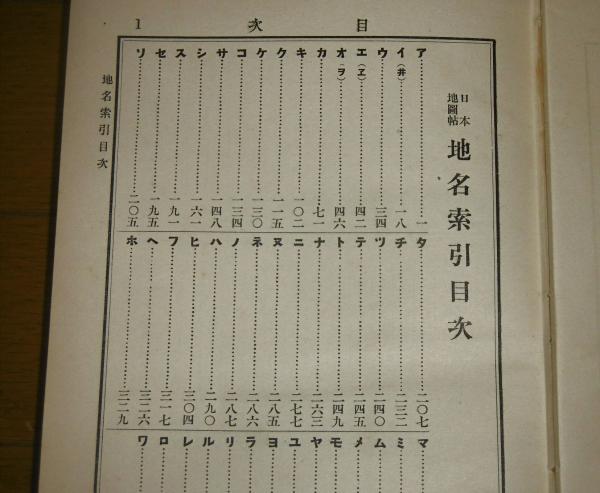 目次
1
日本地圖帖
地名索引目次
ア……一
イ(井)……一八
ウ……三四
エ(ヱ)……四二
オ(ヲ)……四六
カ……七一
キ……一〇二
ク……一一五
ケ……一三〇
コ……一三四
サ……一四八
シ……一六一
ス……一九一
セ……一九五
ソ……二〇五
タ……二〇七
チ……二三二
ツ……二四〇
テ……二四五
ト……二四九
ナ……二六三
ニ……二七七
ヌ……二八五
ネ……二八六
ノ……二八七
ハ……二九〇
ヒ……三〇四
フ……三一七
ヘ……三二六
ホ……三二九
マ
ミ
ム
メ
モ
ヤ
ユ
ヨ
ラ
リ
ル
レ
ロ
ワ
地名索引目次